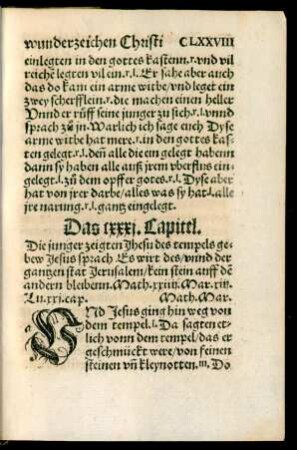 wunderzeichen Christi CLXXVIII
einlegten in den gottes kastenn.r.vnd vil
reichē legten vil ein.r.l.Er sahe aber auch
das do kam ein arme witbe/vnd leget ein
zwey scherfflein.r.die machen einen heller
Vnnd er rüff seine junger zu sich.r.l.vnnd
sprach zů jn.Warlich ich sage euch Dyse
arme witbe hat mer.r.in den gottes kas-
ten gelegt.r.l.deñ alle die ein gelegt habenn
dann sy haben alle auß jrem vberflus ein-
gelegt.l.zů dem opff er gotes.r.l.Dyse aber
hat von jrer darbe/alles was sy hat.l.alle
jre narung.r.l.gantz eingelegt.
Das lxxxj. Capitel.
Die junger zeigten Jhesu des tempels ge-
bew Jesus sprach Es wirt des/vnnd der
gantzen stat Jerusalem/kein stein auff dē
andern bleibenn.Math.xxiiij.Mar.xiij.
Lu.xxi.cap. Math.Mar.
VNd Jesus ging hin weg von
dem tempel.l.Da sagten et-
lich vonn dem tempel/das er
geschmückt were/von feinen
steinen vñ kleynotten.m.Do